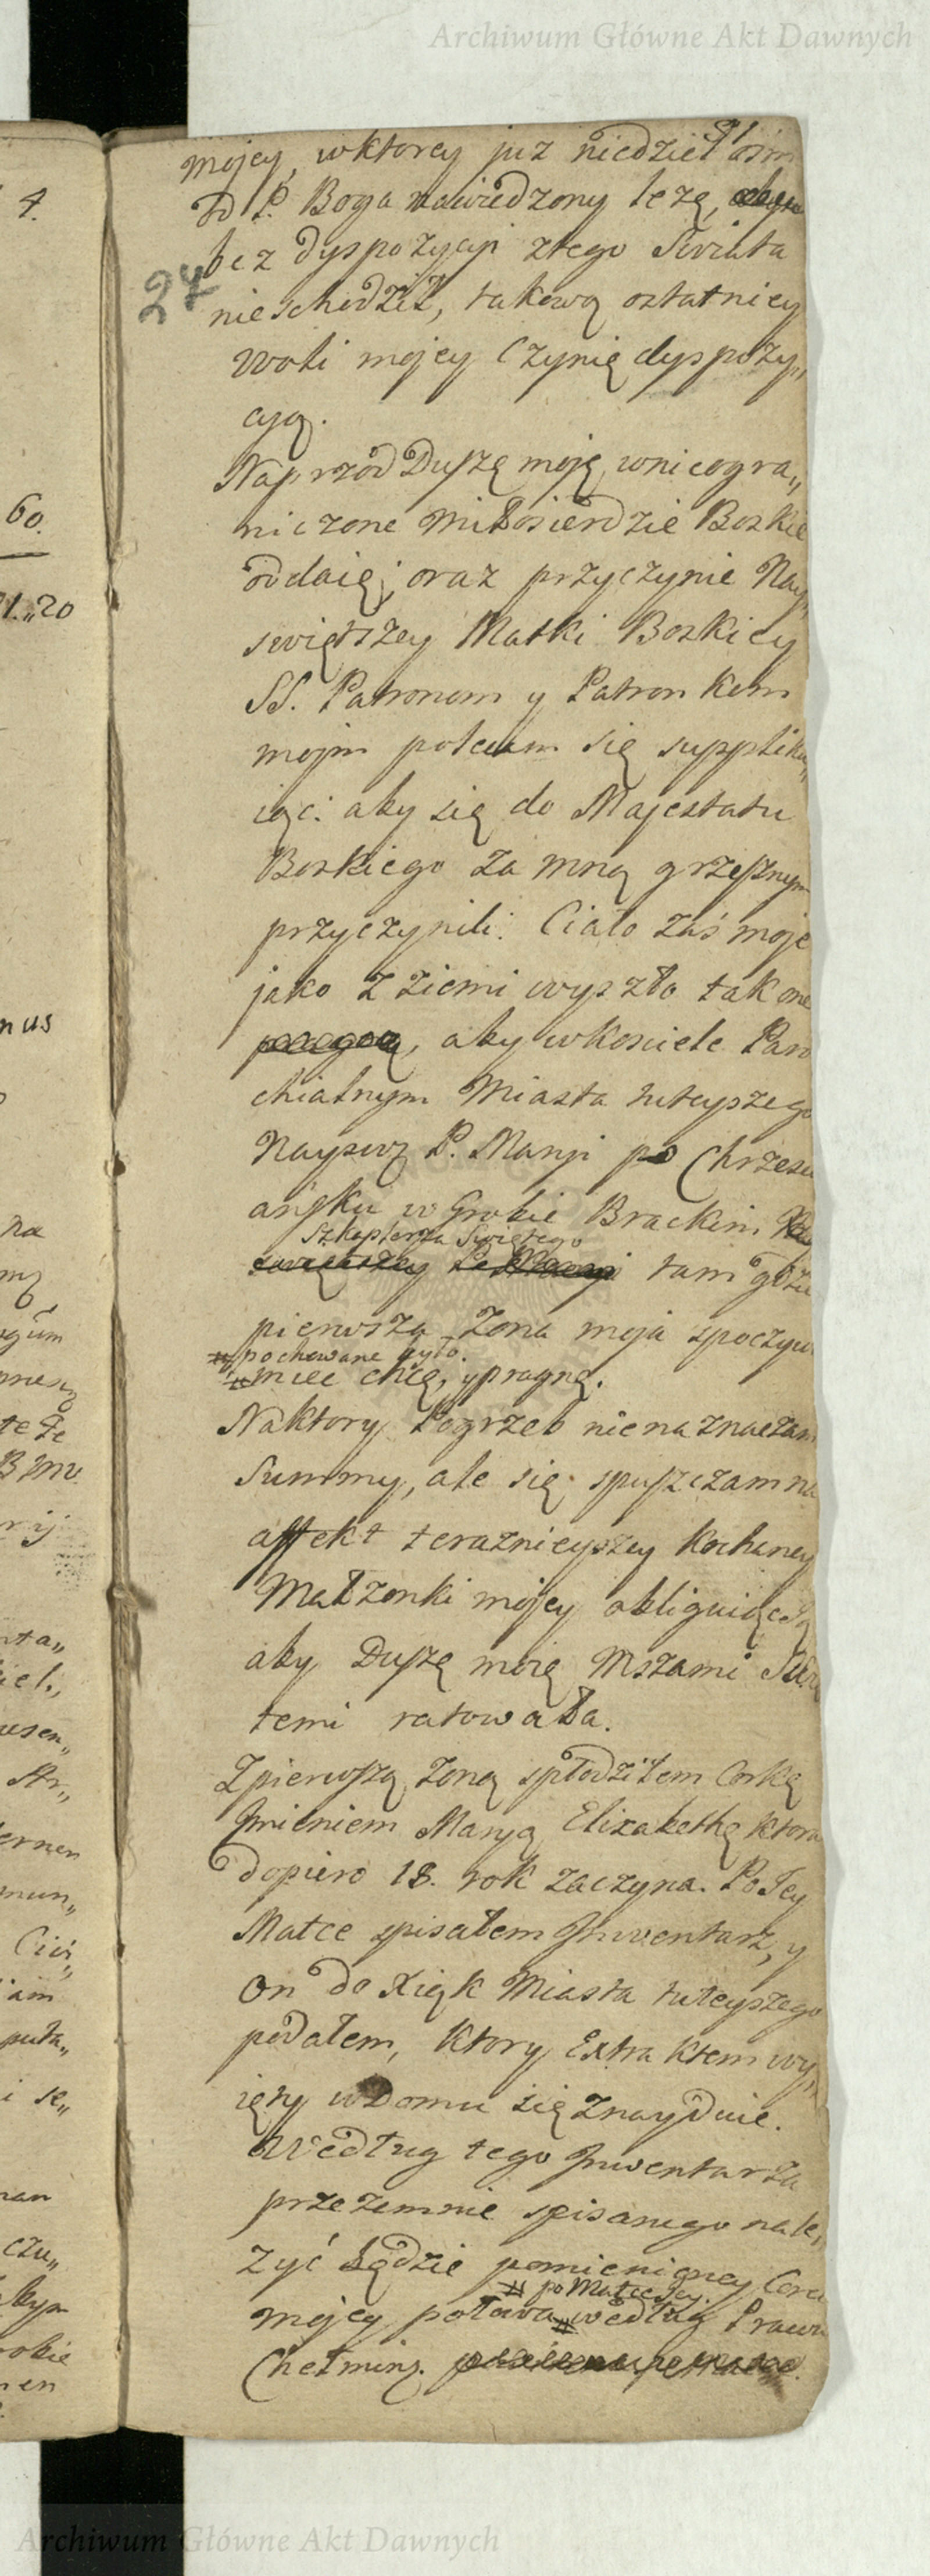 Archiwum Główne Akt Dawnych
mojey, wktorey juz niedziel osm
od P. Boga nawiedzony lezę,
bez dyspozycyi ztego Swiata
24
nieschodził, takową ostatniey
Woli mojey Czynię dyspozy„
cyą.
Naprzod Duszę moję wnieogra„
niczone Miłosierdzie Boskie
oddaię, oraz przyczynie Nay„
swiętszey Matki Boskiey
SS. Patronom y Patronkom
mojm polecam się suppliku„
iąc: aby się do Majestatu
Boskiego za mną grzesznym
przyczynili. Ciało zaś moje
jako z ziemi wyszło tak one
aby wkosciele Paro
chialnym Miasta tuteyszego
Nayswę P. Maryi po Chrzesci
ańsku w Grobie Brackim
Szkaplerza Swiętego
tam gdzie
pierwsza Zona moja spoczywa
pochowane było.
miec chcę, y pragnę.
Naktory Pogrzeb nienaznaczam
Summy, ale się spuszczam na
affekt teraznieyszey Kochaney
Małzonki mojey obliguiąc Ją
aby Duszę moię Mszami Swię
temi ratowała.
Zpierwszą Zoną spłodziłem Corkę
Jmieniem Maryą Elizabethę ktora
dopiero 18. rok zaczyna. Po Jey
Matce spisałem Jnwentarz, y
on do Xiąk Miasta tuteyszego
podałem, ktory Extraktem wy„
ięty w Domu się znayduie.
Według tego Jnwentarza
przezemnie spisanego nale„
zyć będzie pomienioney Corce
po Matce Jey.
mojey połowa według Prawa
Chełminz.
4.
60.
1.„20
nus
na
rij
nta„
Archiwum Główne Akt Dawnych